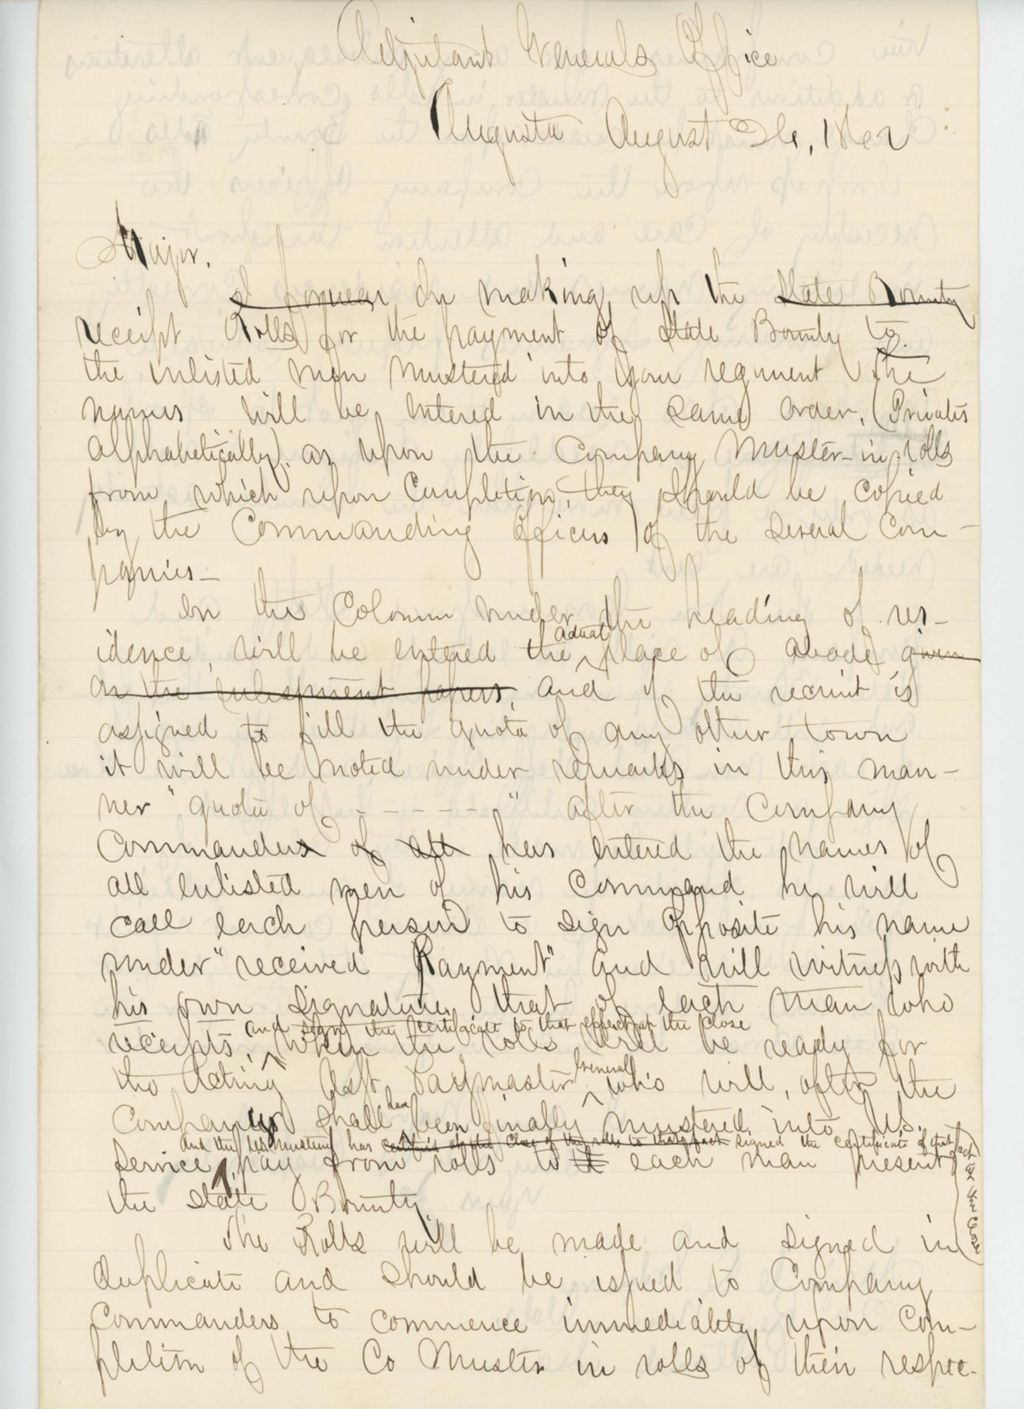 Adjutant Generals Office
Augusta August 26, 1862
Major.
I forward, In making up the State Bounty
receipt Rolls for the payment of State Bounty to
the enlisted men mustered into your regiment the
names will be entered in the same order, (Privates
alphabetically) as upon the Company Muster-in rolls
from which upon Completion, they should be copied
by the Commanding Officers of the several Com-
panies-
In the Column under the heading of res-
idence, will be entered the actual place of abode, given
on the enlistment papers, and if the recruit is
assigned to fill the quota of any other town
it will be noted under remarks in this man-
ner "quota of - - - - - -" after the Company
Commanders of all has entered the names of
all enlisted men of his Command he will
call each person to sign opposite his name
under "received Payment" and will witness with
his own signature that of each man who
and sign the certificate to that effect at the close
receipts, when the rolls will be ready for
the Acting Asst. Paymaster General who will, after the
Company shall have been finally mustered into U.S.
and the mustering has signed the certificate of that fact at the close
Service, pay from rolls to each man present
the State Bounty
The Rolls will be made and signed in
duplicate and should be issued to Company
Commanders to commence immediately upon Com-
pletion of the Co Muster in rolls of their respec-